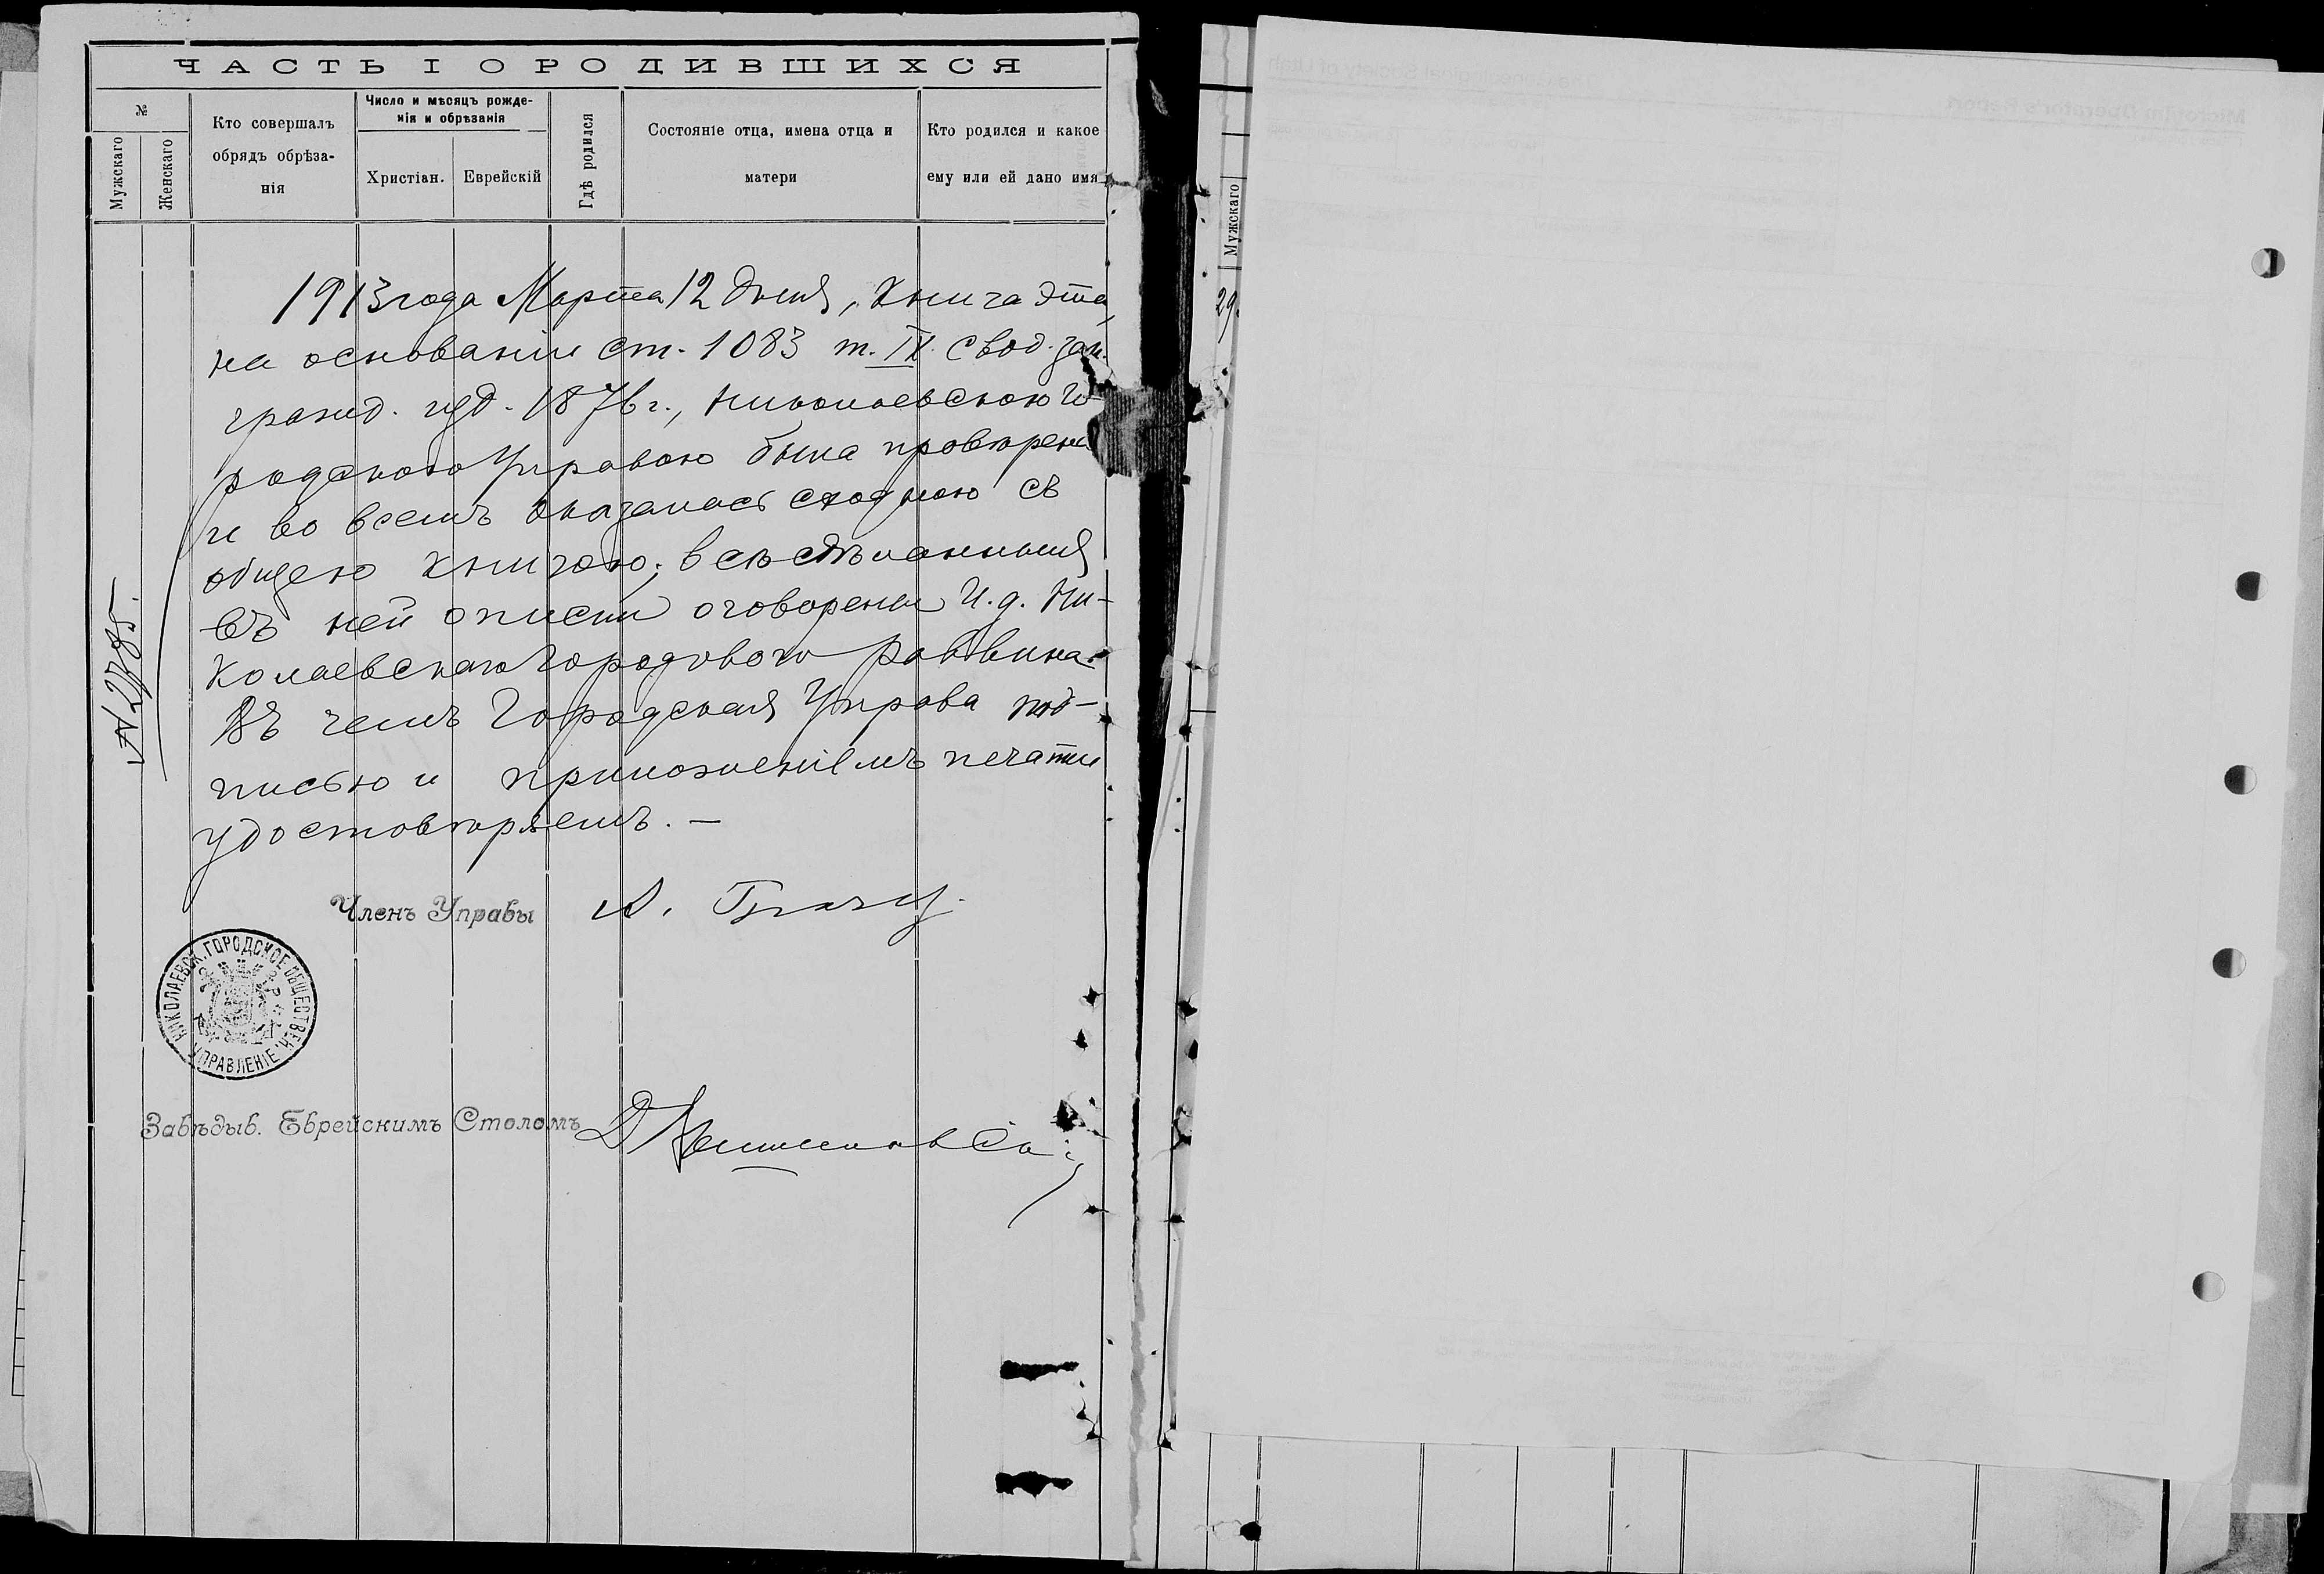 ЧАСТЬ I О РОДИВШИХСЯ
№
Мужскаго
Женскаго
Кто совершалъ
обрядъ обрѣза-
нія
Число и мѣсяцъ рожде-
нія и обрѣзанія
Христіан.
Еврейскій
Гдѣ родился
Состояніе отца, имена отца и
матери
Кто родился и какое
ему или ей дано имя
1913 года Марта 12 дня, Книга эта,
на основаніи ст. 1083 т. IX. Свод. зак.
гражд. изд. 1876 г., Николаевскою Го-
родскою Управою была провѣрена
и во всемъ оказалась сходною съ
общею книгою; всѣ сдѣланныя
въ ней описки оговорены И.д. Ни-
колаевскаго Городового Раввина.
Въ чемъ Городская Управа под-
писью и приложеніемъ печати
удостовѣряетъ. —
№ 2785.
Членъ Управы
НИКОЛАЕВСК. ГОРОДСКОЕ ОБЩЕСТВЕН.
УПРАВЛЕНІЕ
Завѣдыв. Еврейскимъ Столомъ
Мужскаго
29.
Microfilm Operator's Report
Genealogical Society of Utah